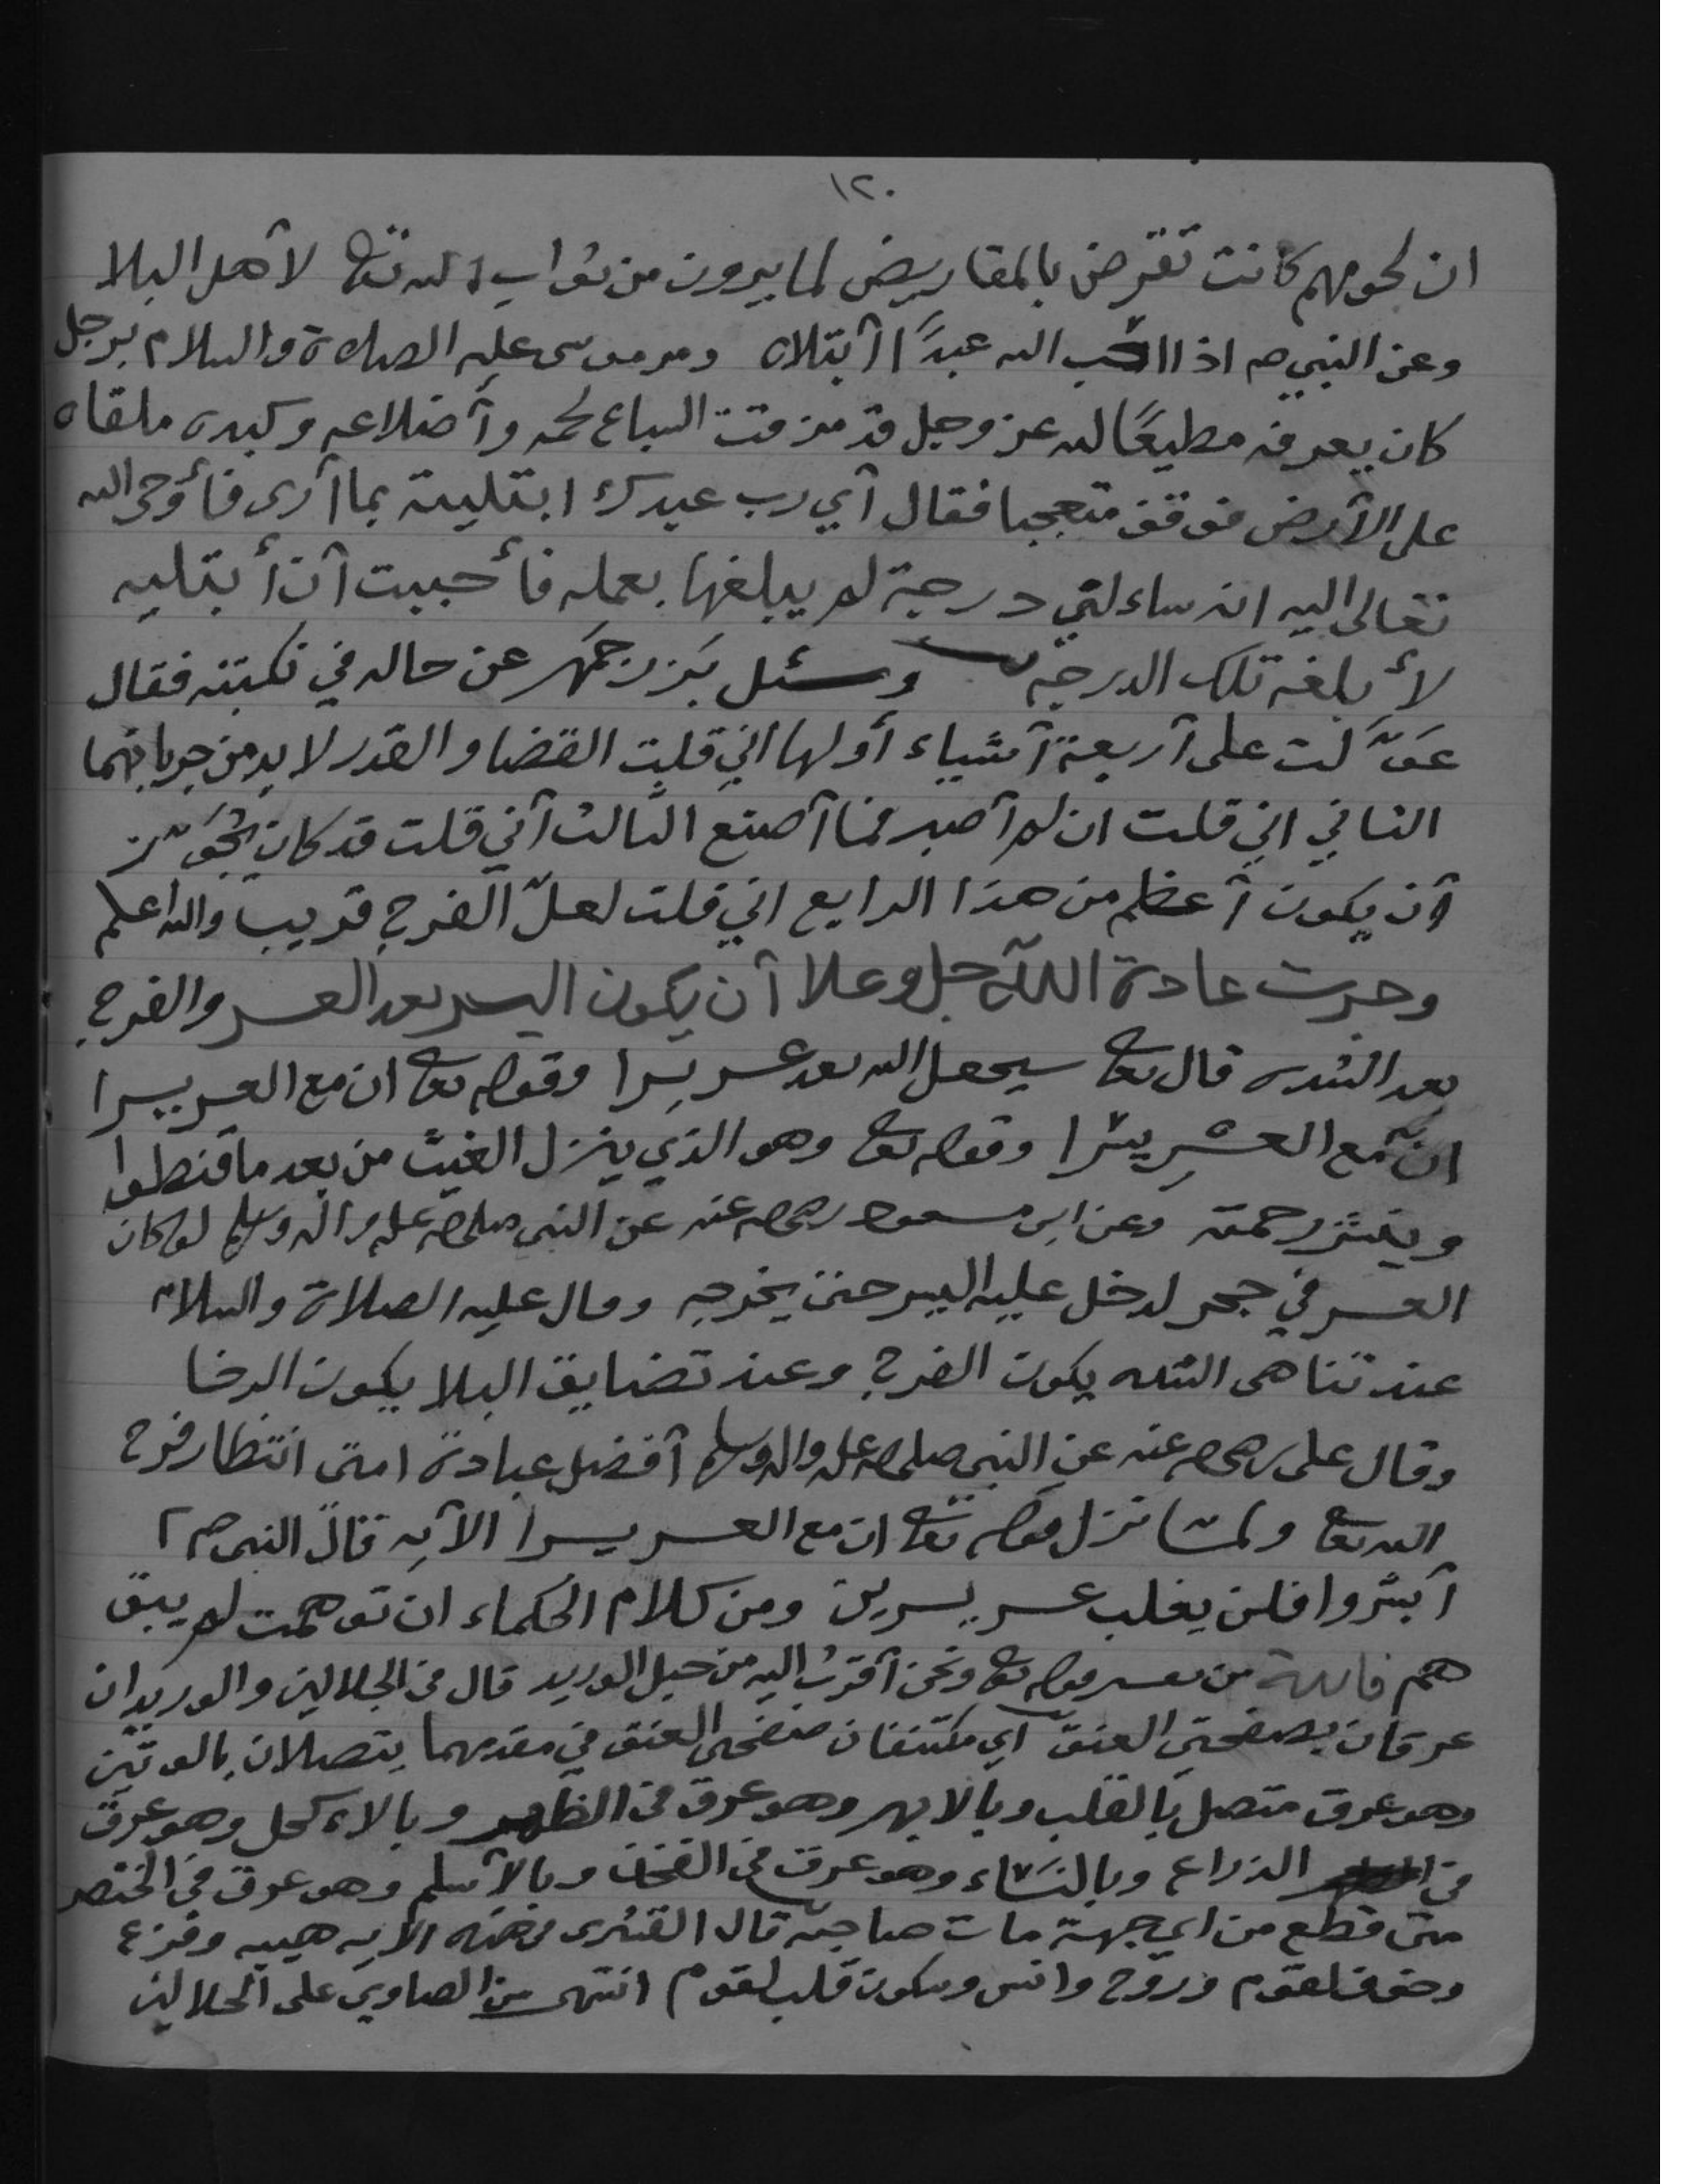 ١٢٠
ان لحومهم كانت تقرض بالمقاريض لما يرون من ثواب الله تعا لأهل البلا
وعن النبي صم اذا احب الله عبدًا ابتلاه ومر موسى عليه الصلاة والسلام برجل
كان يعرفه مطيعًا لله عز وجل قد مزقت السباع لحمه وأضلاعه وكبده ملقاه
على الأرض فوقف متعجبا فقال أي رب عبدك ابتليته بما أرى فأوحى الله
تعالى اليه انه ساءلني درجة لم يبلغها بعمله فأحببت أن أبتليه
لأبلغه تلك الدرجة وسئل بَزرجمهر عن حاله في نكبته فقال
عَوَّلت على أربعة أشياء أولها اني قلت القضا والقدر لا بد من جريانهما
الثاني اني قلت ان لم أصبر فما أصنع الثالث أني قلت قد كان يجوز
أن يكون أعظم من هذا الرابع اني قلت لعلّ الفرج قريب والله اعلم
وجرت عادة الله جل وعلا أن يكون اليسر بعد العسر والفرج
بعد الشده قال تعا سيجعل الله بعد عسر يسرا وقوله تعا ان مع العسر يسرا
انّ مع العسر يسرا وقوله تعا وهو الذي ينزل الغيث من بعد ما قنطوا
وينشر رحمته وعن ابن مسعود رضي الله عنه عن النبي صلى الله عليه واله وسلم لو كان
العسر في جحر لدخل عليه اليسر حتى يخرجه وقال عليه الصلاة والسلام
عند تناهى الشده يكون الفرج وعند تضايق البلا يكون الرخا
وقال على رضي الله عنه عن النبي صلى الله عليه واله وسلم أفضل عبادة امتى انتظار فرج
الله تعا ولمّا نزل قوله تعا ان مع العسر يسرا الآيه قال النبى صم
أبشروا فلن يغلب عسر يسرين ومن كلام الحكماء ان توهمت لم يبق
هم فائدة من تفسير قوله تعا ونحن أقرب اليه من حبل الوريد قال في الجلالين والوريدان
عرقان بصفحتي العنق أي مكتنفان صفحتي العنق في مقدمهما يتصلان بالوتين
وهو عرق متصل بالقلب وبالابهر وهو عرق في الظهر وبالاءكحل وهو عرق
في الذراع وبالنساء وهو عرق في الفخذ وبالأسلم وهو عرق في الخنصر
متى قطع من اي جهة مات صاحبه قال القشيرى في هذه الآيه هيبه وفزع
وخوف لقوم وروح وانس وسكون قلب لقوم انتهى من الصاوي على الجلالين